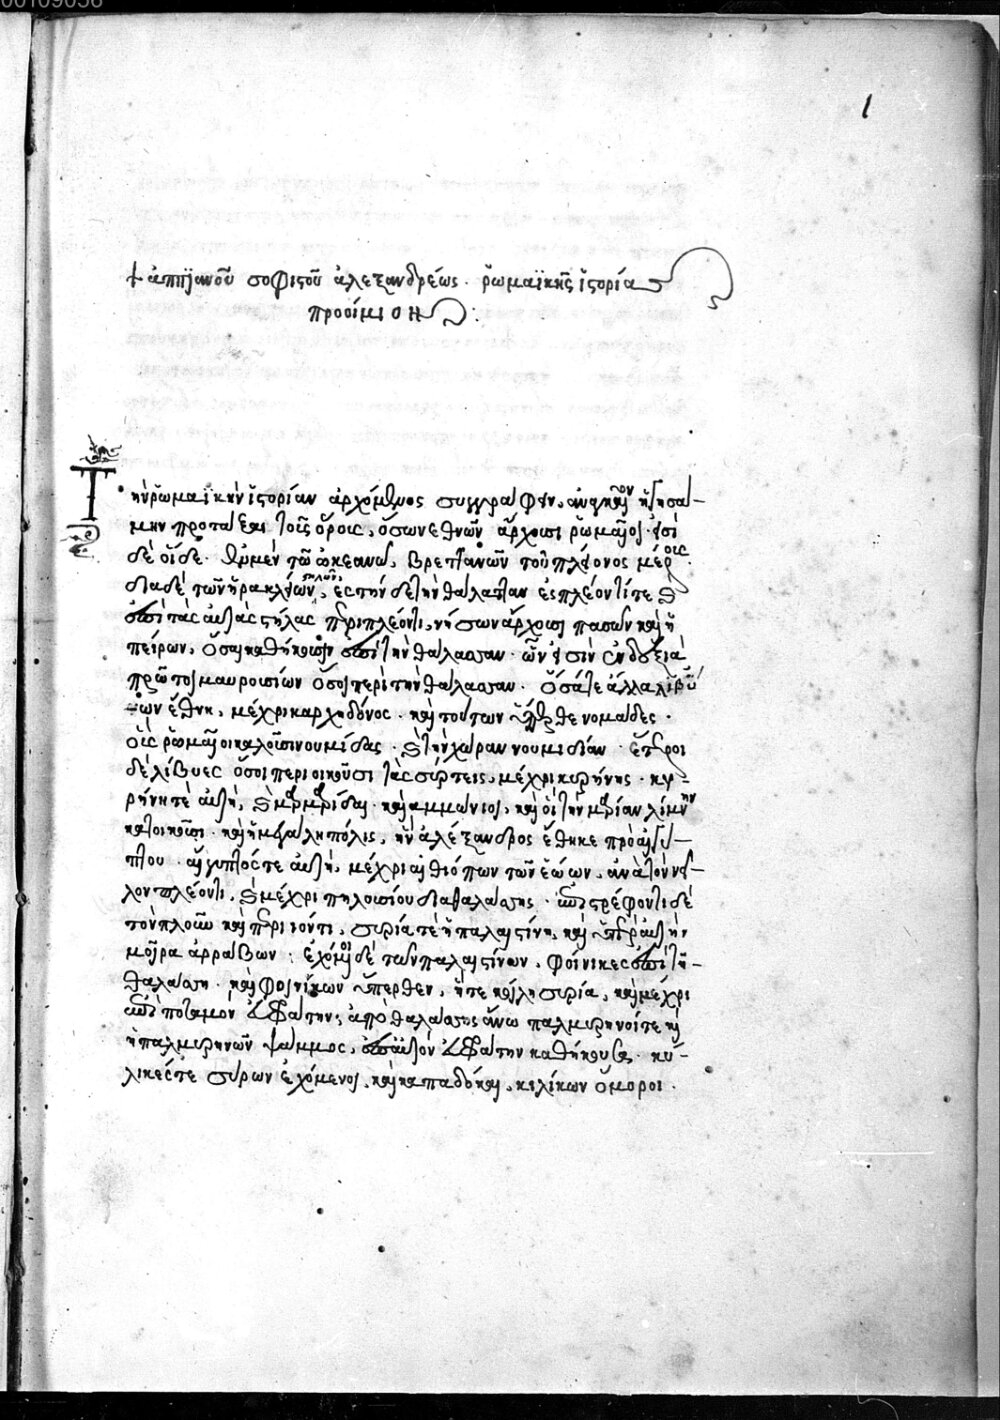 00109056
1
+ ἀππϊανοῦ σοφιστοῦ ἀλεξανδρέως. ῥωμαϊκῆς ἱστορία
προοίμιον :
Τὴν ῥωμαϊκὴν ἱστορίαν ἀρχόμενος συγγράφειν, ἀναγκαῖον ἡγησά-
μην προτάξαι τοῖς ὅροις, ὅσων ἐθνῶν ἄρχουσι ῥωμαῖοι. εἰσὶ
δὲ οἵδε. ἐν μὲν τῶ ὠκεανῶ, βρεττανῶν τοῦ πλείονος μέρους.
διὰ δὲ τῶν ἡρακλείων στηλῶν, ἐς τήνδε τὴν θάλατταν ἐσπλέοντί τε καὶ
ἐπὶ τὰς αὐτὰς στήλας περιπλέοντι, νήσων ἄρχουσι πασῶν καὶ ἠ
πείρων, ὅσαι καθήκουσιν ἐπὶ τὴν θάλασσαν. ὧν εἰσὶν ἐν δεξιᾶ
πρῶτοι μαυρουσίων ὅσοι περὶ τὴν θάλασσαν. ὅσά τε ἄλλα λιβύ
ων ἔθνη, μέχρι καρχηδόνος. καὶ τούτων ὕπερθε νομάδες.
οὓς ῥωμαῖοι καλοῦσι νουμίδας. καὶ τὴν χώραν νουμιδίαν. ἕτεροι
δὲ λίβυες ὅσοι περιοικοῦσι τὰς σύρτεις, μέχρι κυρήνης. κυ-
ρήνη τὲ αὐτὴ, καὶ μαρμαρίδαι. καὶ ἀμμώνιοι, καὶ οἳ τὴν μαρίαν λίμνην
κατοικοῦσι. καὶ ἡ μεγάλη πόλις, ἣν ἀλέξανδρος ἔθηκε πρὸ αἰγύ-
πτου. αἴγυπτός τε αὐτὴ, μέχρι αἰθιόπων τῶν ἑώων, ἀνὰ τὸν νεῖ-
λον πλέοντι, καὶ μέχρι πηλουσίου διὰ θαλάσσης. ἐπιστρέφοντι δὲ
τὸν πλοῦν καὶ περιιόντι, συρία τὲ ἡ παλαιστίνη, καὶ ὑπὲρ αὐτὴν
μοῖρα ἀρράβων : ἐχόμενοι δὲ τῶν παλαιστίνων, φοίνικες ἐπὶ τῆ
θαλάσση. καὶ φοινίκων ὕπερθεν, ἥτε κοίλη συρία, καὶ μέχρι
ἐπὶ ποταμὸν εὐφράτην, ἀπὸ θαλάσσης ἄνω παλμυρηνοί τε καὶ
ἡ παλμυρηνῶν ψάμμος, ἐπ' αὐτὸν εὐφράτην καθήκουσα. κύ-
λικές τε σύρων ἐχόμενοι, καὶ καππαδόκαι, κιλίκων ὅμοροι.